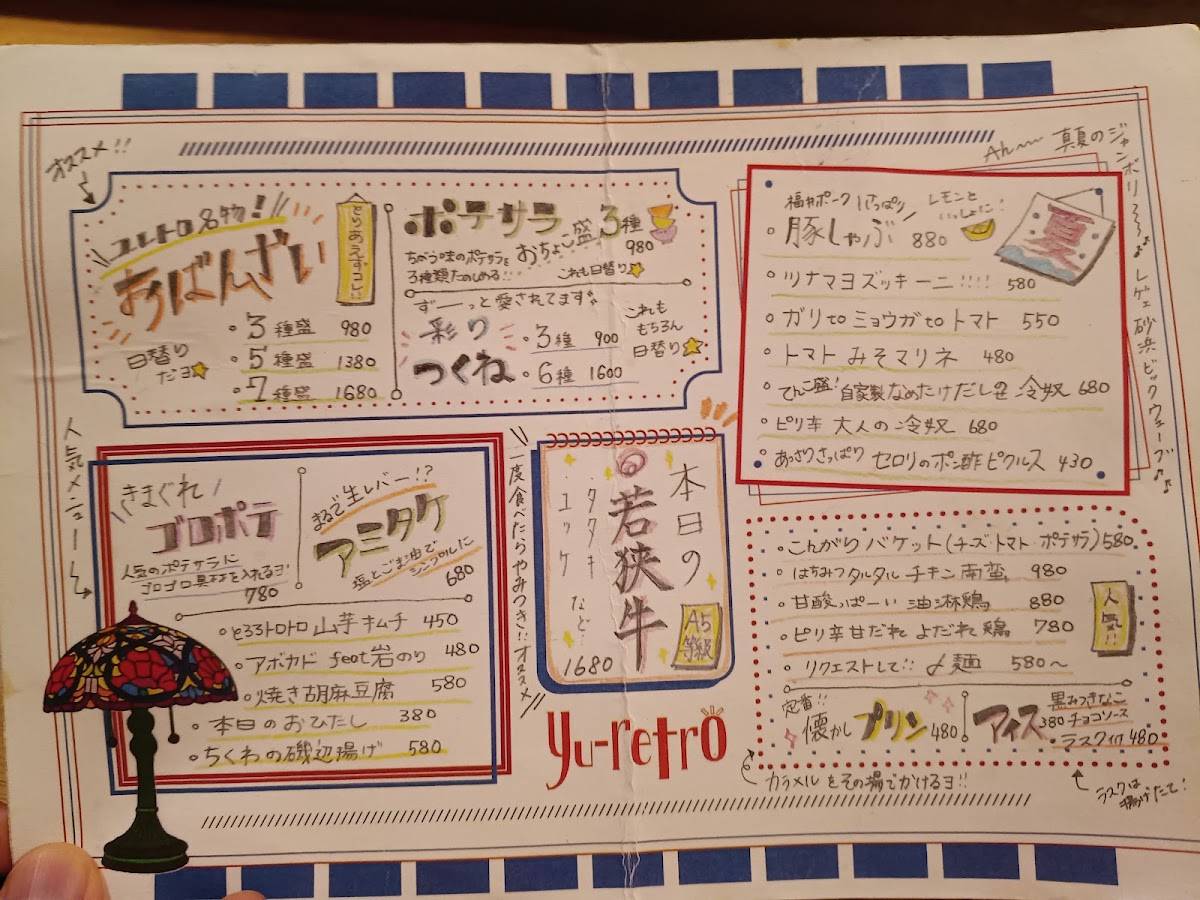 オススメ!!
ユレトロ名物!
おばんざい
とりあえずコレ!!
日替り
だヨ
・3種盛 980
・5種盛 1380
・7種盛 1680
ポテサラ
おちょこ盛 3種
980
ちがう味のポテサラを
3種類たのしめる!!
これも日替り
ずーっと愛されてます
彩り
つくね
・3種 900
・6種 1600
これも
もちろん
日替り
Ah〜 真夏のジャンボリ〜〜♪ レゲェ砂浜ビックウェーブ♪♪
夏
福井ポーク
レモンと
いっしょに!
・豚しゃぶ 880
・ツナマヨズッキーニ!!!! 580
・ガリtoミョウガtoトマト 550
・トマトみそマリネ 480
・てんこ盛!自家製なめたけだし 冷奴 680
・ピリ辛 大人の冷奴 680
・あっさりさっぱり セロリのポン酢ピクルス 430
人気メニュー
きまぐれ
ゴロポテ
人気のポテサラに
ゴロゴロ具材を入れるヨ!
780
まるで生レバー!?
アミタケ
塩とごま油で
シンプルに
680
・とろろトロトロ山芋キムチ 450
・アボカド feat 岩のり 480
・焼き胡麻豆腐 580
・本日のおひたし 380
・ちくわの磯辺揚げ 580
一度食べたらやみつき!!オススメ
本日の
◎若狭牛
・タタキ
・ユッケ など…
A5
等級
1680
yu-retro
・こんがりバケット(チーズ・トマト・ポテサラ) 580
・はちみつタルタルチキン南蛮 980
・甘酸っぱーい 油淋鶏 880
・ピリ辛甘だれ よだれ鶏 780
・リクエストして!! 〆麺 580〜
人気!!
定番!!
懐かしプリン 480
アイス
380
黒みつきなこ
チョコソース
・ラスク付 480
カラメルをその場でかけるヨ!!
ラスクは
揚げたて!